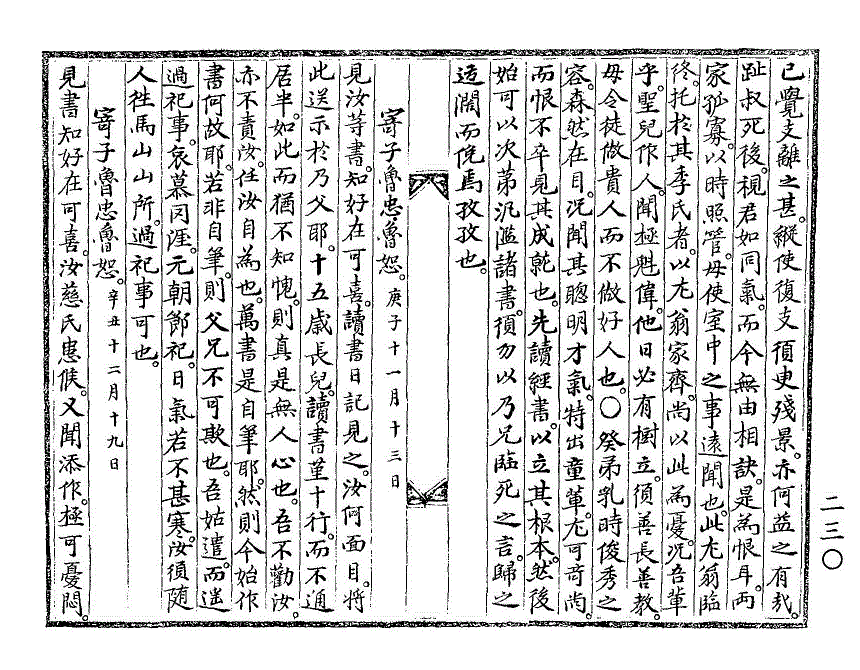 已覺支離之甚。縱使復支須臾殘景。亦何益之有哉。
趾叔死後。視君如同氣。而今無由相訣。是爲恨耳。两
家孤寡。以時照管。毋使室中之事遠聞也。此尤翁臨
終。托於其季氏者。以尤翁家齊。尚以此爲憂。况吾輩
乎。聖兒作人。聞極魁偉。他日必有樹立。須善長善教。
毋令徒做貴人而不做好人也。○癸弟乳時俊秀之
容。森然在目。况聞其聰明才氣。特出童軰。尤可奇尚。
而恨不卒見其成就也。先讀經書。以立其根本。然後
始可以次第汎濫諸書。須勿以乃兄臨死之言。歸之
迃濶而俛焉孜孜也。
寄子魯忠魯恕。庚子十一月十三日
見汝等書。知好在可喜。讀書日記見之。汝何面目。將
此送示於乃父耶。十五歲長兒。讀書堇十行。而不通
居半。如此而猶不知愧。則真是無人心也。吾不勸汝。
亦不責汝。任汝自爲也。萬書是自筆耶。然則今始作
書何故耶。若非自筆。則父兄不可欺也。吾姑遣。而迷
過祀事。哀慕罔涯。元朝節祀。日氣若不甚寒。汝須随
人往馬山山所。過祀事可也。
寄子魯忠魯恕。辛丑十二月十九日
見書知好在可喜。汝慈氏患候。又聞添作。極可憂悶。
二三〇